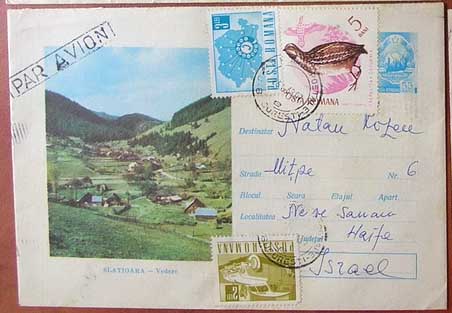 PAR AVION
3 LEI
POSTA ROMANA
5 BANI
POSTA ROMANA
BUCURESTI
Destinatar Natan Rozen
Strada Mitpe Nr. 6
Blocul Scara Etajul Apart
Localitatea Neve Sanan
Județul Haifa
Israel
SLATIOARA — Vedere
POSTA ROMANA
2 LEI